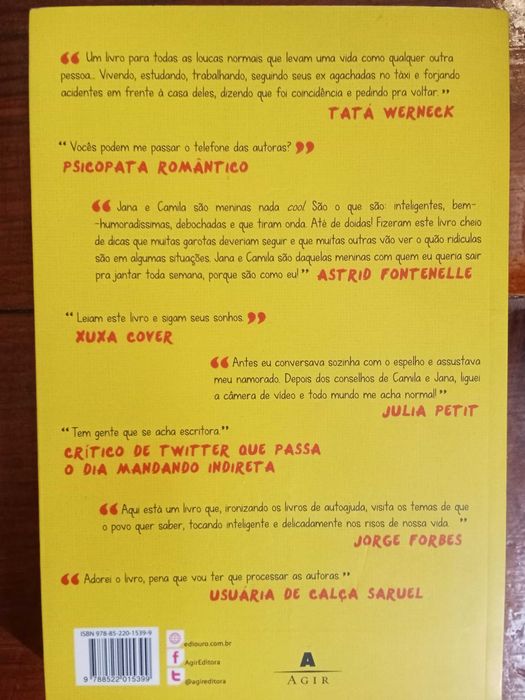 “ Um livro para todas as loucas normais que levam uma vida como qualquer outra
pessoa... Vivendo, estudando, trabalhando, seguindo seus ex agachadas no táxi e forjando
acidentes em frente à casa deles, dizendo que foi coincidência e pedindo pra voltar. ”
TATÁ WERNECK
“ Vocês podem me passar o telefone das autoras? ”
PSICOPATA ROMÂNTICO
“ Jana e Camila são meninas nada cool. São o que são: inteligentes, bem-
-humoradíssimas, debochadas e que tiram onda. Até de doidas! Fizeram este livro cheio
de dicas que muitas garotas deveriam seguir e que muitas outras vão ver o quão ridículas
são em algumas situações. Jana e Camila são daquelas meninas com quem eu queria sair
pra jantar toda semana, porque são como eu! ” ASTRID FONTENELLE
“ Leiam este livro e sigam seus sonhos. ”
XUXA COVER
“ Antes eu conversava sozinha com o espelho e assustava
meu namorado. Depois dos conselhos de Camila e Jana, liguei
a câmera de vídeo e todo mundo me acha normal! ”
JULIA PETIT
“ Tem gente que se acha escritora. ”
CRÍTICO DE TWITTER QUE PASSA
O DIA MANDANDO INDIRETA
“ Aqui está um livro que, ironizando os livros de autoajuda, visita os temas de que
o povo quer saber, tocando inteligente e delicadamente nos risos de nossa vida. ”
JORGE FORBES
“ Adorei o livro, pena que vou ter que processar as autoras. ”
USUÁRIA DE CALÇA SARUEL
ISBN 978-85-220-1539-9
9 788522 015399
ediouro.com.br
f AgirEditora
t @agireditora
A
AGIR